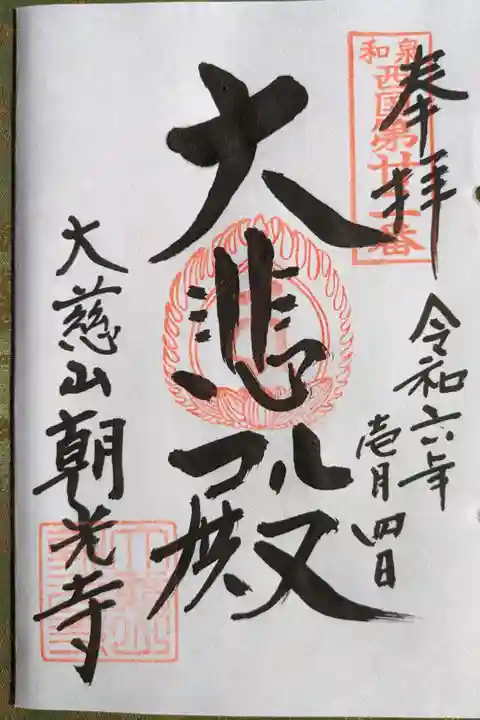 奉拝
和泉
西国第廿番
令和六年
壱月四日
大悲殿
大慈山朝光寺